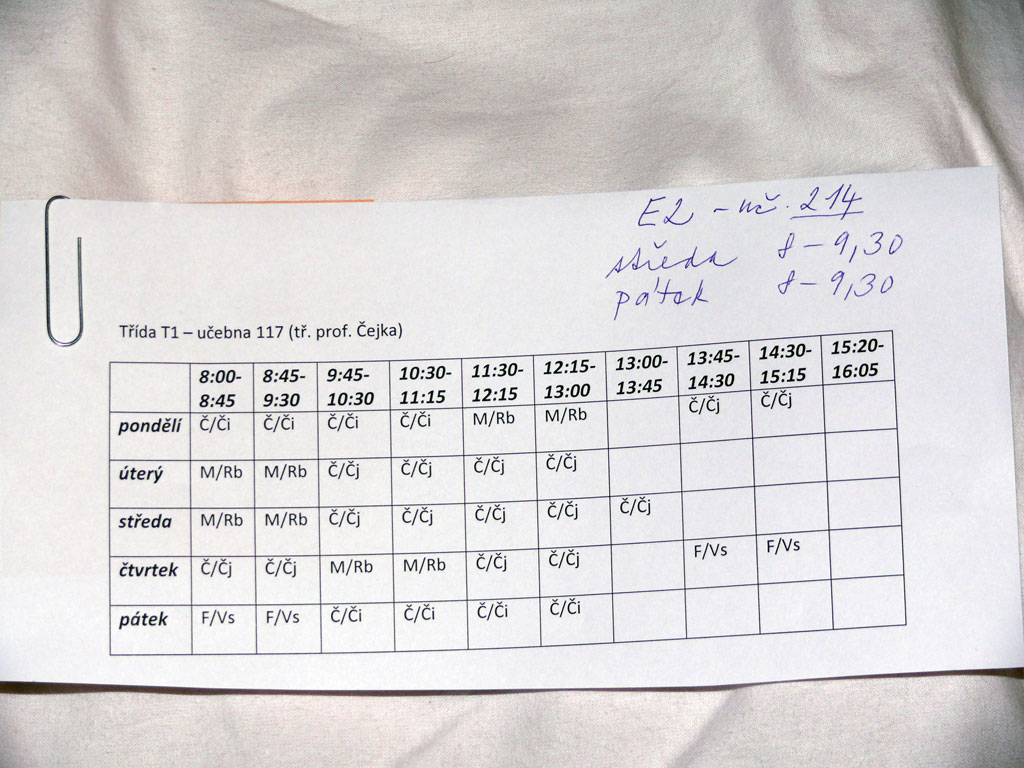 E2 - uč. 214
středa 8 - 9,30
pátek 8 - 9,30
Třída T1 – učebna 117 (tř. prof. Čejka)
8:00-8:45 8:45-9:30 9:45-10:30 10:30-11:15 11:30-12:15 12:15-13:00 13:00-13:45 13:45-14:30 14:30-15:15 15:20-16:05
pondělí Č/Či Č/Či Č/Či Č/Či M/Rb M/Rb Č/Čj Č/Čj
úterý M/Rb M/Rb Č/Čj Č/Čj Č/Čj Č/Čj
středa M/Rb M/Rb Č/Čj Č/Čj Č/Čj Č/Čj Č/Čj
čtvrtek Č/Čj Č/Čj M/Rb M/Rb Č/Čj Č/Čj F/Vs F/Vs
pátek F/Vs F/Vs Č/Či Č/Či Č/Či Č/Či